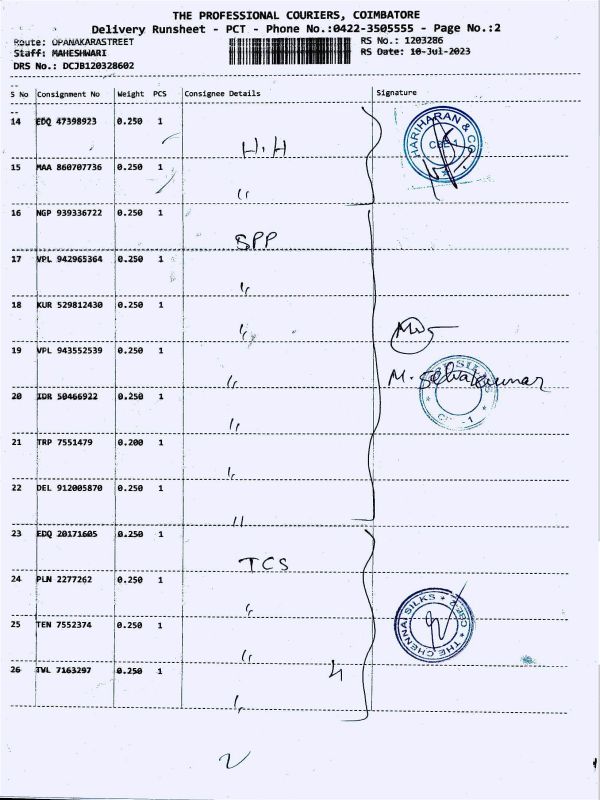 THE PROFESSIONAL COURIERS, COIMBATORE
Delivery Runsheet - PCT - Phone No.:0422-3505555 - Page No.:2
Route: OPANAKARASTREET RS No.: 1203286
Staff: MAHESHWARI RS Date: 10-Jul-2023
DRS No.: DCJB120328602
S No Consignment No Weight PCS Consignee Details Signature
14 EDQ 47398923 0.250 1 H.H HARIHARAN & CO CBE-1
15 MAA 860707736 0.250 1 〃
16 NGP 939336722 0.250 1 SPP
17 VPL 942965364 0.250 1 〃
18 KUR 529812430 0.250 1 〃
19 VPL 943552539 0.250 1 〃 M. Selvakumar
20 IDR 50466922 0.250 1 〃 SILKS
21 TRP 7551479 0.200 1 〃
22 DEL 912005870 0.250 1 〃
23 EDQ 20171605 0.250 1 TCS
24 PLN 2277262 0.250 1 〃
25 TEN 7552374 0.250 1 〃 THE CHENNAI SILKS
26 TVL 7163297 0.250 1 〃 4